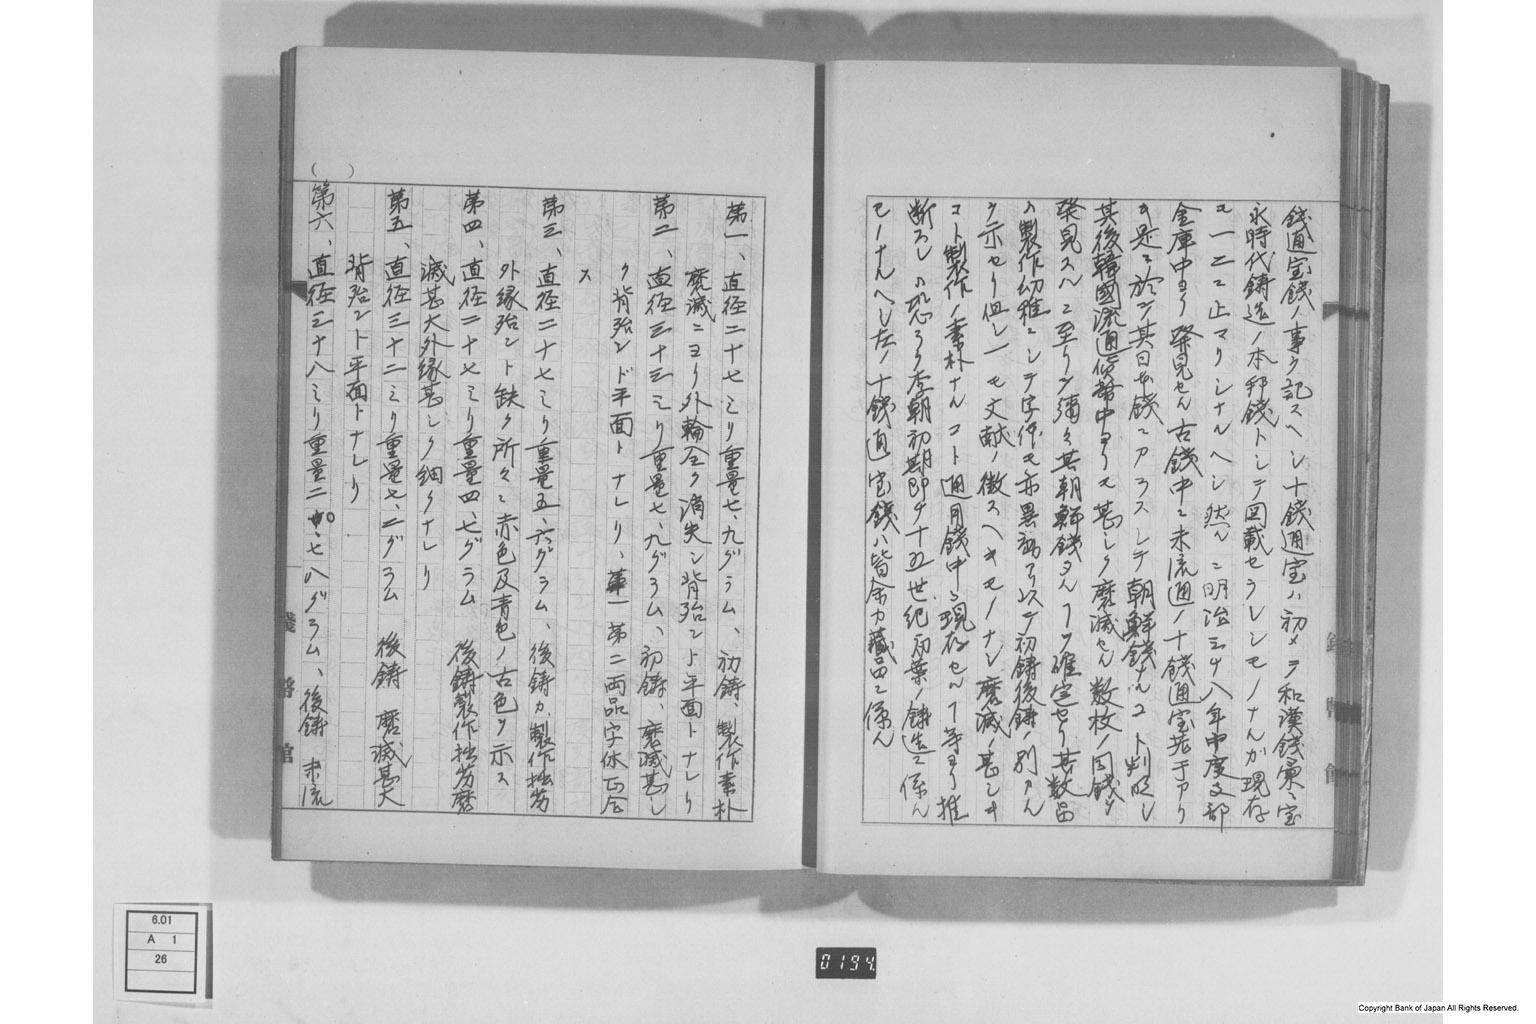 錢通宝錢ノ事ヲ記スヘシ十錢通宝ハ初メテ和漢錢彙ニ宝
永時代鋳造ノ本邦錢トシテ図載セラレシモノナルガ現存
ハ一二ニ止マリシナルヘシ然ルニ明治三十八年中度支部
金庫中ヨリ発見セル古錢中ニ未流通ノ十錢通宝若干アリ
是ニ於テ其日本錢ニアラスシテ朝鮮錢ナルコト判明シ
其後韓國流通貨幣中ヨリモ甚シク磨滅セル数枚ノ同錢ヲ
発見スルニ至リテ弥々其朝鮮錢タル丁ヲ確定セリ其数品
ハ製作幼稚ニシテ字体モ亦異ナリ初鋳後鋳ノ別アル
ヲ示セリ但シ一モ文献ノ徴スヘキモノナシ磨滅ノ甚シキ
コト製作ノ素朴ナルコト通用錢中ニ現存セル丁等ヨリ推
断スレハ恐ラク李朝初期即チ十五世紀初葉ノ鋳造ニ係ル
モノナルヘシ左ノ十錢通宝錢ハ皆余カ蔵品ニ係ル
第一、直径二十七ミリ重量七、九グラム、初鋳、製作素朴
磨滅ニヨリ外輪全ク消失シ背殆ント平面トナレリ
第二、直径三十三ミリ重量七、九グラム、初鋳、磨滅甚シ
ク背殆ンド平面トナレリ、第一第二両品字体正仝
ス
第三、直径二十七ミリ重量五、六グラム、後鋳カ、製作拙劣
外縁殆ント缺ク所々ニ赤色及青色ノ古色ヲ示ス
第四、直径二十七ミリ重量四、七グラム 後鋳製作拙劣磨
滅甚大外縁甚シク細クナレリ
第五、直径三十二ミリ重量七、二グラム 後鋳 磨滅甚大
背殆ント平面トナレリ
第六、直径三十八ミリ重量二 、七八グラム、後鋳 未流
( )
錢幣館
錢幣館
6.01
A 1
26
0194
Copyright Bank of Japan All Rights Reserved.